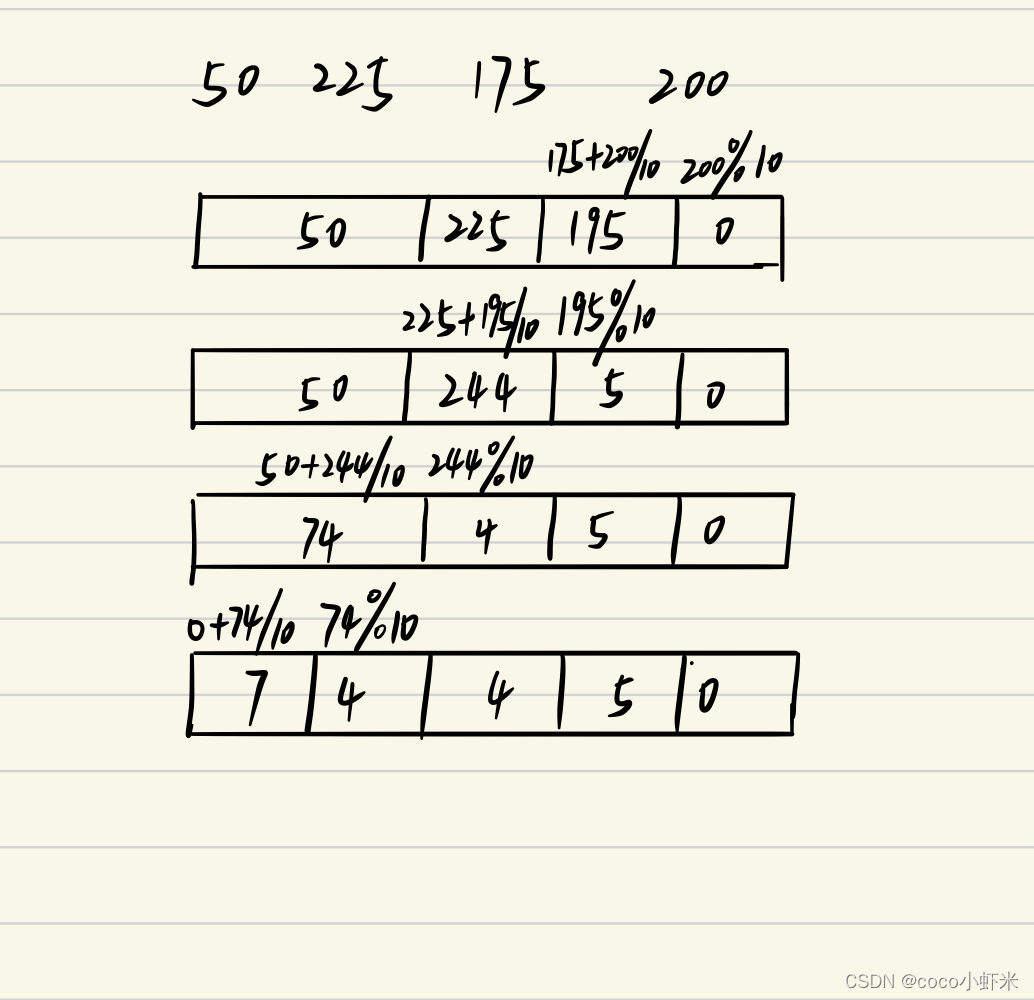 50 225 175 200
175+200/10 200%10
50 225 195 0
225+195/10 195%10
50 244 5 0
50+244/10 244%10
74 4 5 0
0+74/10 74%10
7 4 4 5 0
CSDN @coco小虾米